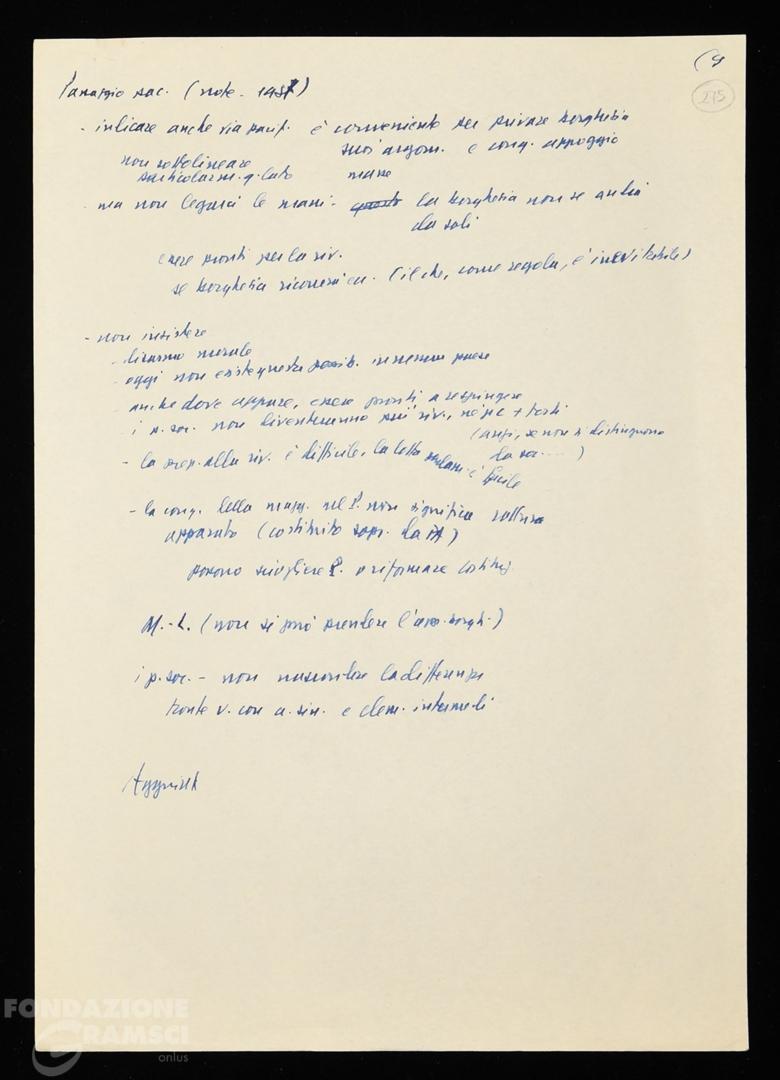 (9
275
Passaggio pac. (note - 1957)
- indicare anche via pacif. è conveniente per privare borghesia
suoi argom. e conq. appoggio
non sottolineare
particolarm. q. lato masse
- ma non legarci le mani - questo la borghesia non se andrà
da sola
essere pronti per la riv.
se borghesia ricorresse a (il che, come regola, è inevitabile)
- non insistere
- disarmo morale
- oggi non esiste questa possib. in nessun paese
- anche dove appare, essere pronti a respingere
i p. soc. non diventeranno più riv., né i pc + forti
(anzi, se non si distinguono
- la prep. alla riv. è difficile, la lotta parlam. è facile
da soc. .... )
- la conq. della magg. nel P. non significa rottura
apparato (costituito sopr. da FA)
possono sciogliere P. o riformare costituz.
M.-L. (non si può prendere l'app. borgh.)
i p. soc. - non nascondere la differenza
fronte u. con a. sin. e elem. intermedi
FONDAZIONE
GRAMSCI
onlus